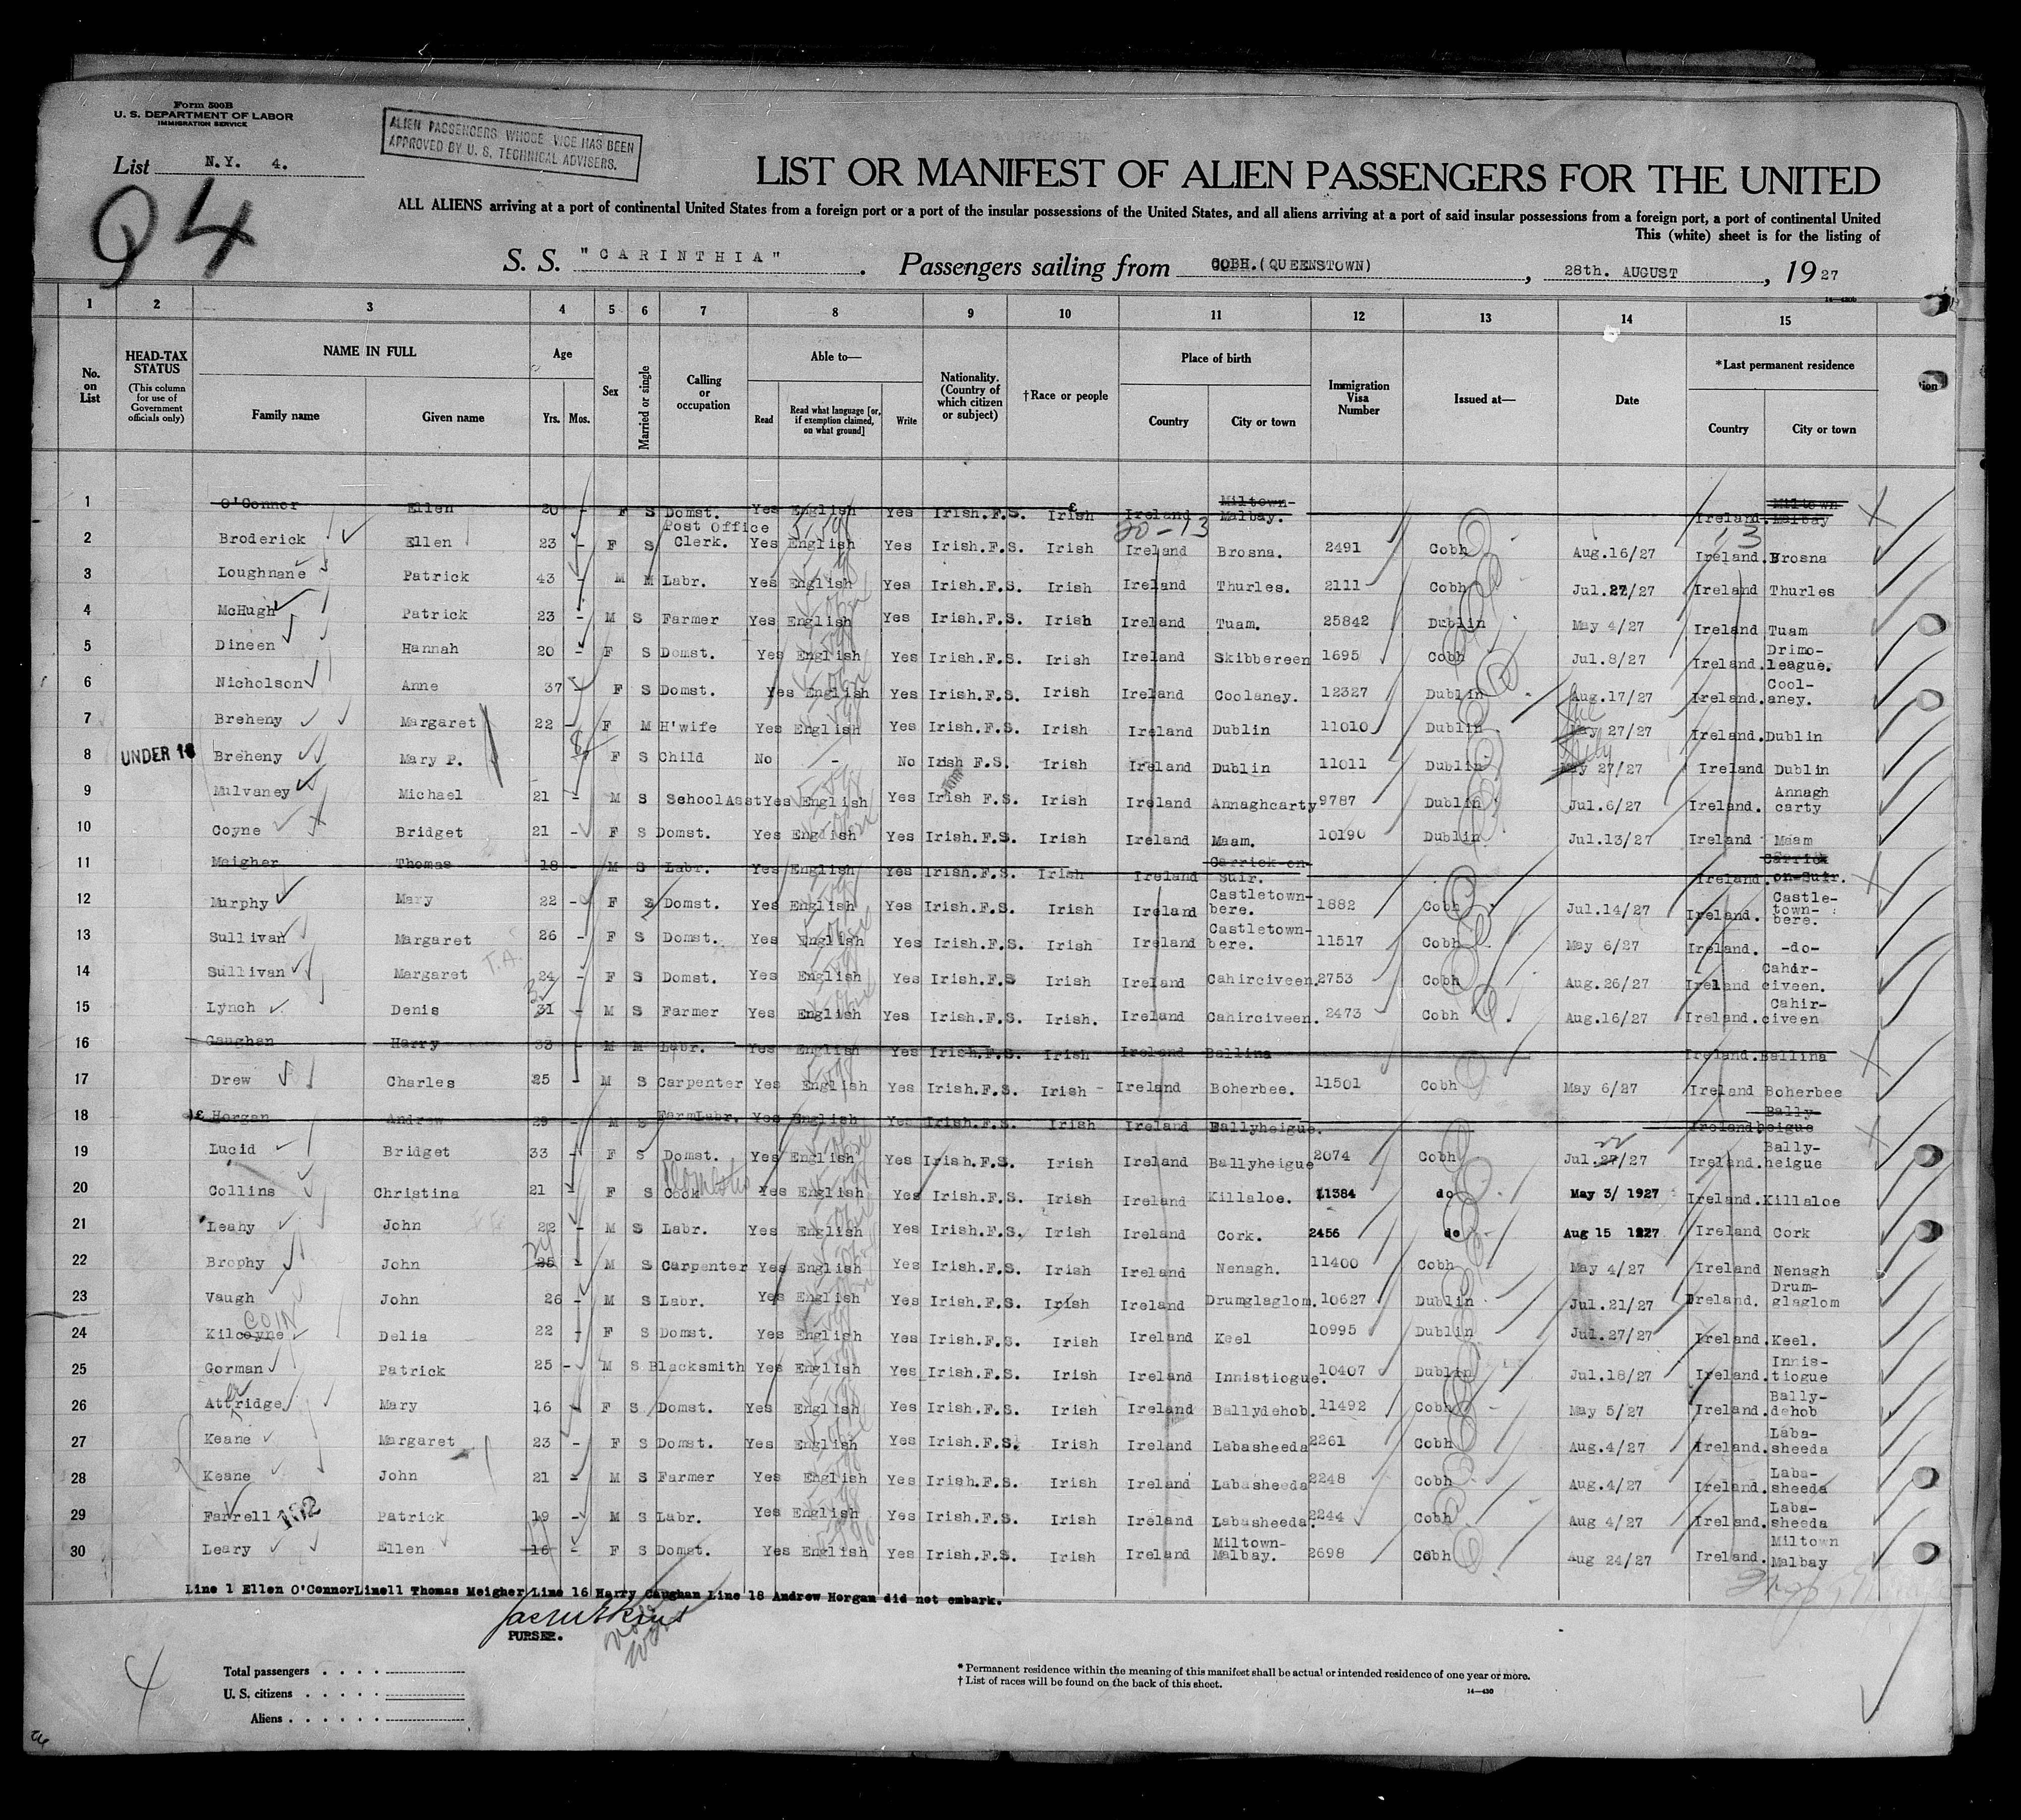 Form 500B
U. S. DEPARTMENT OF LABOR
IMMIGRATION SERVICE
ALIEN PASSENGERS WHOSE VICE HAS BEEN
APPROVED BY U. S. TECHNICAL ADVISERS.
List N.Y. 4.
94
LIST OR MANIFEST OF ALIEN PASSENGERS FOR THE UNITED
ALL ALIENS arriving at a port of continental United States from a foreign port or a port of the insular possessions of the United States, and all aliens arriving at a port of said insular possessions from a foreign port, a port of continental United
This (white) sheet is for the listing of
S. S. "CARINTHIA". Passengers sailing from COBH.(QUEENSTOWN), 28th. AUGUST, 1927
14—430b
1 2 3 4 5 6 7 8 9 10 11 12 13 14 15
No. on List
HEAD-TAX STATUS (This column for use of Government officials only)
NAME IN FULL
Family name Given name
Age
Yrs. Mos.
Sex
Married or single
Calling or occupation
Able to—
Read Read what language [or, if exemption claimed, on what ground] Write
Nationality. (Country of which citizen or subject)
†Race or people
Place of birth
Country City or town
Immigration Visa Number
Issued at—
Date
*Last permanent residence
Country City or town
1 O'Connor Ellen 20 - F S Domst. Yes English Yes Irish.F.S. Irish Ireland Miltown-Malbay. Ireland. Miltown Malbay
20-13
13
2 Broderick Ellen 23 - F S Post Office Clerk. Yes English Yes Irish.F.S. Irish Ireland Brosna. 2491 Cobh Aug.16/27 Ireland. Brosna
3 Loughnane Patrick 43 - M M Labr. Yes English Yes Irish.F.S. Irish Ireland Thurles. 2111 Cobh Jul.27/27 Ireland Thurles
4 McHugh Patrick 23 - M S Farmer Yes English Yes Irish.F.S. Irish Ireland Tuam. 25842 Dublin May 4/27 Ireland Tuam
5 Dineen Hannah 20 - F S Domst. Yes English Yes Irish.F.S. Irish Ireland Skibbereen 1695 Cobh Jul.8/27 Ireland. Drimo-league.
6 Nicholson Anne 37 - F S Domst. Yes English Yes Irish.F.S. Irish Ireland Coolaney. 12327 Dublin Aug.17/27 Ireland. Cool-aney.
7 Breheny Margaret 22 - F M H'wife Yes English Yes Irish.F.S. Irish Ireland Dublin 11010 Dublin May 27/27 Ireland. Dublin
8 UNDER 16 Breheny Mary P. F S Child No - No Irish F.S. Irish Ireland Dublin 11011 Dublin May 27/27 July Ireland Dublin
9 Mulvaney Michael 21 - M S SchoolAsst Yes English Yes Irish F.S. Irish Ireland Annaghcarty 9787 Dublin Jul.6/27 Ireland. Annagh carty
10 Coyne Bridget 21 - F S Domst. Yes English Yes Irish.F.S. Irish Ireland Maam. 10190 Dublin Jul.13/27 Ireland Maam
11 Meigher Thomas 18 - M S Labr. Yes English Yes Irish.F.S. Irish Ireland Carrick-on-Suir. Ireland. Carrick on-Suir.
12 Murphy Mary 22 - F S Domst. Yes English Yes Irish.F.S. Irish Ireland Castletown-bere. 1882 Cobh Jul.14/27 Ireland. Castle-town-bere.
13 Sullivan Margaret 26 - F S Domst. Yes English Yes Irish.F.S. Irish Ireland Castletown-bere. 11517 Cobh May 6/27 Ireland. -do-
14 Sullivan Margaret 24 - F S Domst. Yes English Yes Irish.F.S Irish Ireland Cahirciveen. 2753 Cobh Aug.26/27 Ireland Cahir-civeen.
15 Lynch Denis 31 - M S Farmer Yes English Yes Irish.F.S. Irish. Ireland Cahirciveen. 2473 Cobh Aug.16/27 Ireland. Cahir-civeen
16 Gaughan Harry 33 - M M Labr. Yes English Yes Irish.F.S. Irish Ireland Ballina Ireland. Ballina
17 Drew Charles 25 - M S Carpenter Yes English Yes Irish.F.S. Irish - Ireland Boherbee. 11501 Cobh May 6/27 Ireland Boherbee
18 Horgan Andrew 29 - M S FarmLabr. Yes English Yes Irish.F.S. Irish Ireland Ballyheigue. Ireland Bally-heigue
19 Lucid Bridget 33 - F S Domst. Yes English Yes Irish.F.S. Irish Ireland Ballyheigue 2074 Cobh Jul.27/27 22 Ireland. Bally-heigue
20 Collins Christina 21 - F S Cook Domestic Yes English Yes Irish.F.S. Irish Ireland Killaloe. 11384 do May 3/ 1927 Ireland. Killaloe
21 Leahy John 22 - M S Labr. Yes English Yes Irish.F.S. Irish Ireland Cork. 2456 do Aug 15 1927 Ireland Cork
22 Brophy John 25 24 - M S Carpenter Yes English Yes Irish.F.S. Irish Ireland Nenagh. 11400 Cobh May 4/27 Ireland Nenagh
23 Vaugh John 26 - M S Labr. Yes English Yes Irish.F.S. Irish Ireland Drumglaglom. 10627 Dublin Jul.21/27 Ireland. Drum-glaglom
24 Kilcoyne COIN Delia 22 - F S Domst. Yes English Yes Irish.F.S. Irish Ireland Keel 10995 Dublin Jul.27/27 Ireland. Keel.
25 Gorman Patrick 25 - M S Blacksmith Yes English Yes Irish.F.S. Irish Ireland Innistiogue. 10407 Dublin Jul.18/27 Ireland. Innis-tiogue
26 Attridge Mary 16 - F S Domst. Yes English Yes Irish.F.S. Irish Ireland Ballydehob. 11492 Cobh May 5/27 Ireland. Bally-dehob
27 Keane Margaret 23 - F S Domst. Yes English Yes Irish.F.S. Irish Ireland Labasheeda 2261 Cobh Aug.4/27 Ireland. Laba-sheeda
28 Keane John 21 - M S Farmer Yes English Yes Irish.F.S. Irish Ireland Labasheeda 2248 Cobh Aug.4/27 Ireland. Laba-sheeda
29 Farrell Patrick 19 - M S Labr. Yes English Yes Irish.F.S. Irish Ireland Labasheeda. 2244 Cobh Aug 4/27 Ireland. Laba-sheeda
30 Leary Ellen 16 - F S Domst. Yes English Yes Irish.F.S. Irish Ireland Miltown-Malbay. 2698 Cobh Aug 24/27 Ireland. Miltown Malbay
Line 1 Ellen O'ConnorLine11 Thomas Meigher Line 16 Harry Gaughan Line 18 Andrew Horgan did not embark.
PURSER.
4
Total passengers . . . .
U. S. citizens . . . . .
Aliens . . . . . .
* Permanent residence within the meaning of this manifest shall be actual or intended residence of one year or more.
† List of races will be found on the back of this sheet.
14—430